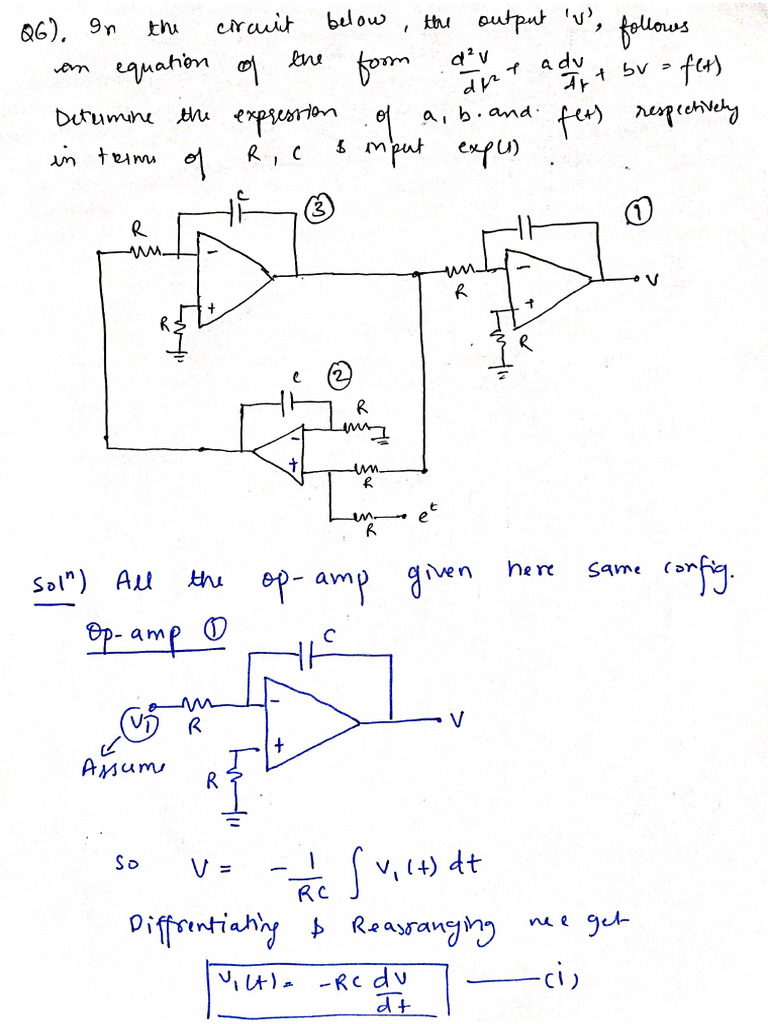 Q6). In the circuit below, the output 'v', follows
an equation of the form d²v/dt² + a dv/dt + bv = f(t)
Determine the expression of a, b. and f(t) respectively
in terms of R, C & input exp(t).
C
③
①
R
R
v
R
R
c
②
R
R
R
e^t
Solⁿ) All the op-amp given here same config.
Op-amp ①
C
V₁
R
V
Assume
R
so V = -1/RC ∫ v₁(t) dt
Diffrentiating & Rearranging we get
V₁(t) = -RC dv/dt ——— (i)